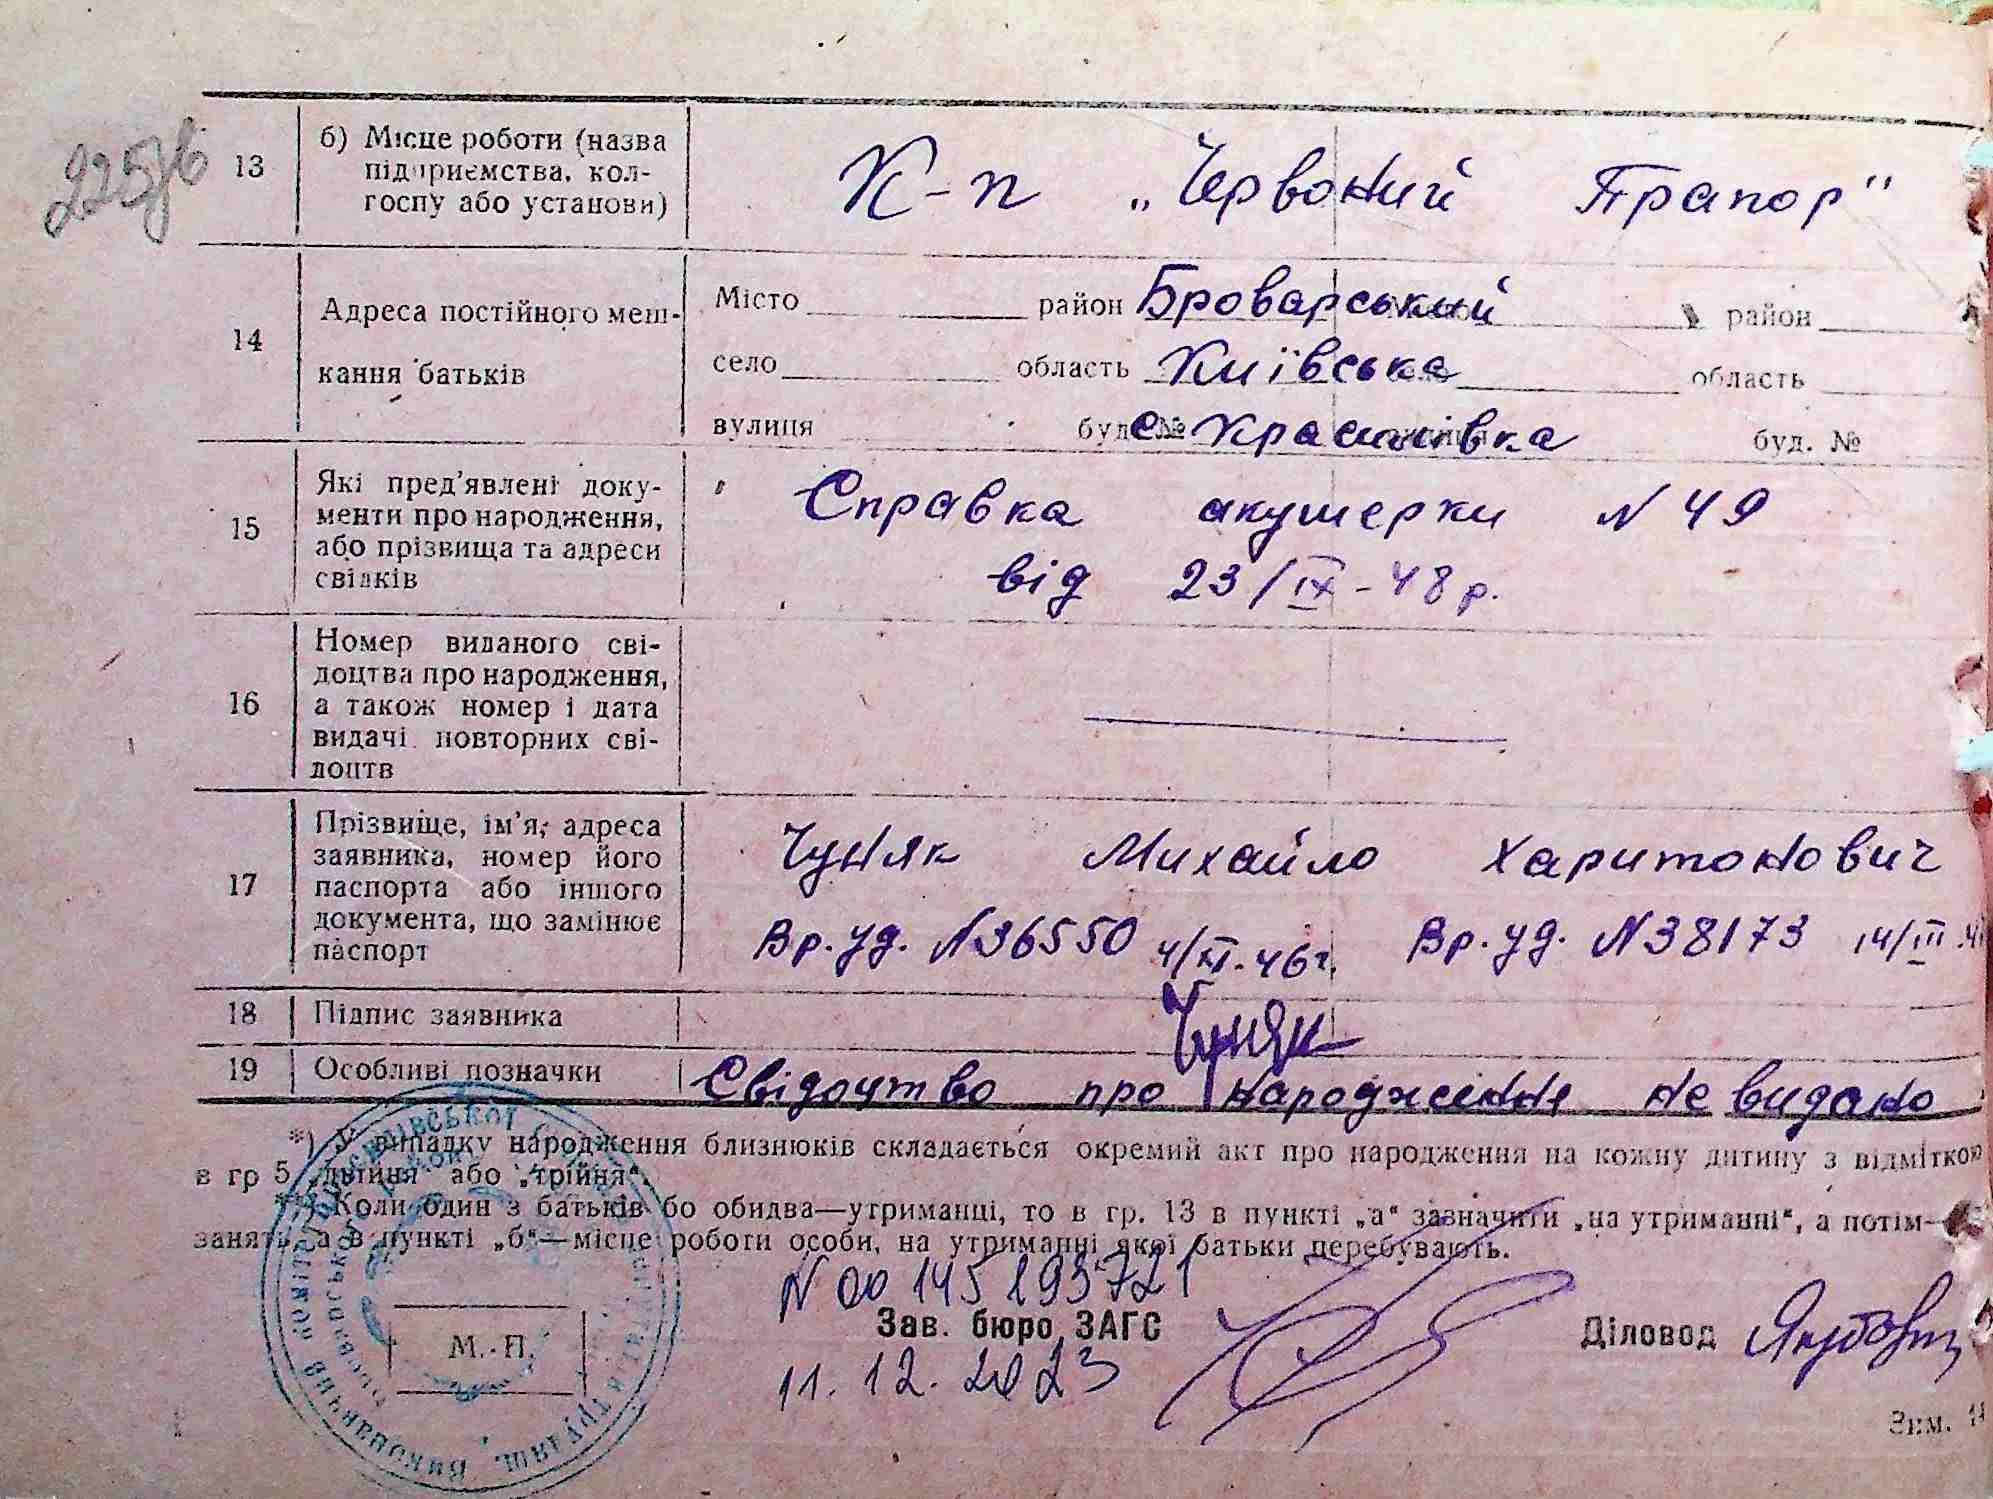 225/в
13 б) Місце роботи (назва
підприємства, кол-
госпу або установи)
К-п „Червоний Прапор"
14 Адреса постійного меш-
кання батьків
Місто район Броварський район
село область Київська область
вулиця буд. № с. Красилівка буд. №
15 Які пред'явлені доку-
менти про народження,
або прізвища та адреси
свідків
Справка акушерки N 49
від 23/IX-48р.
16 Номер виданого сві-
доцтва про народження,
а також номер і дата
видачі повторних сві-
доцтв
17 Прізвище, ім'я, адреса
заявника, номер його
паспорта або іншого
документа, що замінює
паспорт
Чуняк Михайло Харитонович
Вр. уд. N36550 4/XI-46г. Вр. уд. N38173 14/III
18 Підпис заявника Чуняк
19 Особливі позначки Свідоцтво про народження не видано
*) У випадку народження близнюків складається окремий акт про народження на кожну дитину з відміткою
в гр 5 „двійня" або „трійня".
Коли один з батьків бо обидва—утриманці, то в гр. 13 в пункті „а" зазначити „на утриманні", а потім—
занять, а в пункті „б"—місце роботи особи, на утриманні якої батьки перебувають.
N 00145293721
Зав. бюро ЗАГС
Діловод
11.12.2023
М. П.
Зим.